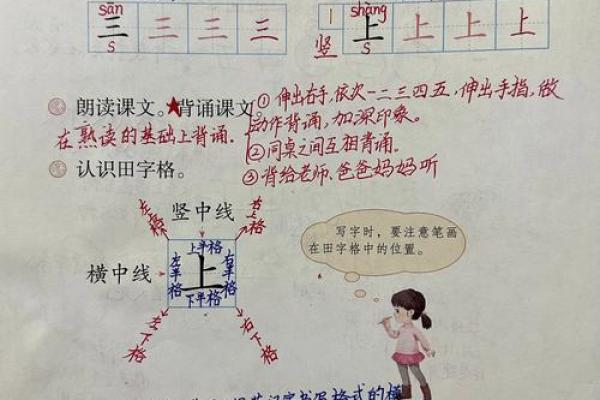 sān
shàng
三 三 三 三
丨 上 上 上 上
S
竖
S
朗读课文。★背诵课文。
①伸出右手,依次一二三四五,伸出手指,做
动作背诵,加深印象。
在熟读的基础上背诵.
②同桌之间互相背诵。
认识田字格。
③背给老师、爸爸妈妈听
左上格
竖中线
右上格
写字时,要注意笔画
在田字格中的位置。
上半格
横中线
左半格
上
右半格
下半格
左下格
右下格
书写格式的横